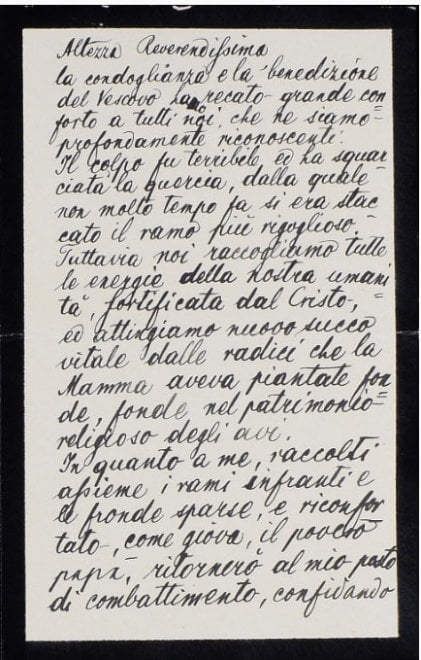 Altezza Reverendissima
la condoglianza e la benedizione
del Vescovo ha recato grande con
forto a tutti noi, che ne siamo=
profondamente riconoscenti.
Il colpo fu terribile ed ha squar
ciata la quercia, dalla quale=
non molto tempo fa si era stac
cato il ramo più rigoglioso.=
Tuttavia noi raccogliamo tutte
le energie della nostra umani
tà, fortificata dal Cristo,=
ed attingiamo nuovo succo
vitale dalle radici che la
Mamma aveva piantate fon
de, fonde nel patrimonio=
religioso degli avi.
In quanto a me, raccolti
assieme i rami infranti e
le fronde sparse, e riconfor
tato, come giova, il povero=
papà, ritornerò al mio posto
di combattimento, confidando